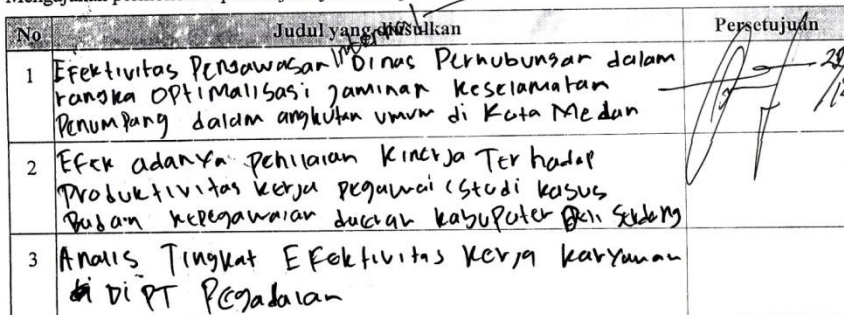 No Judul yang diusulkan Persetujuan
Intern
1 Efektivitas Pengawasan Dinas Perhubungan dalam
rangka OPtimalisasi jaminan keselamatan
Penumpang dalam angkutan umum di Kota Medan
2 Efek adanya penilaian Kinerja Terhadap
Produktivitas kerja pegawai (Studi kasus
Badan kepegawaian daerah kabupaten Deli Serdang
3 Analis Tingkat Efektivitas Kerja karyawan
Di PT Pegadaian